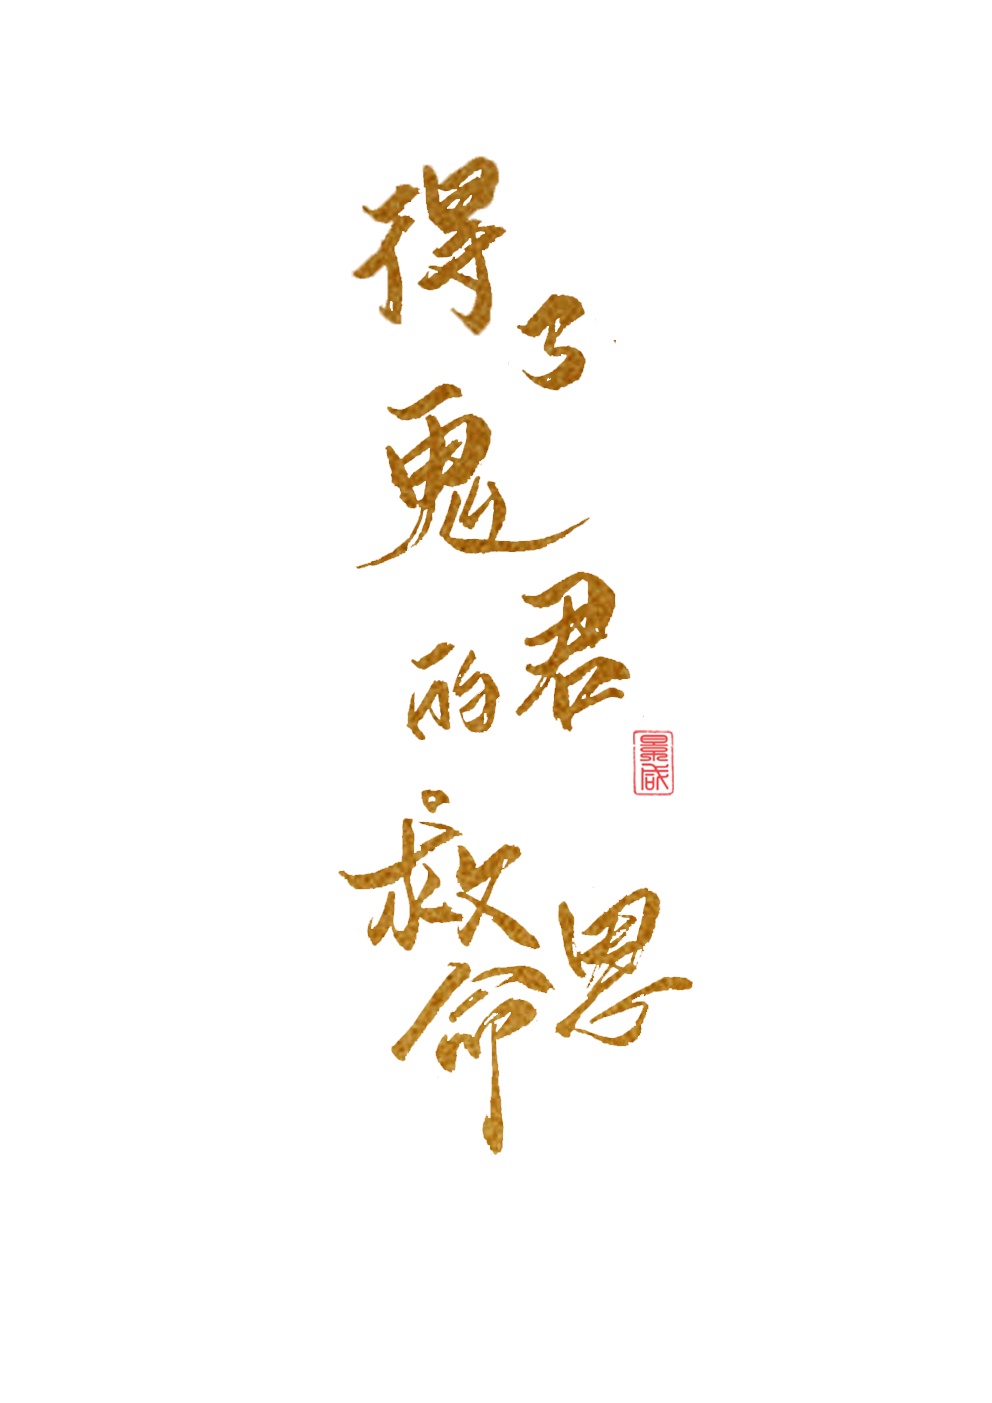 得了鬼君的救命恩
景咸